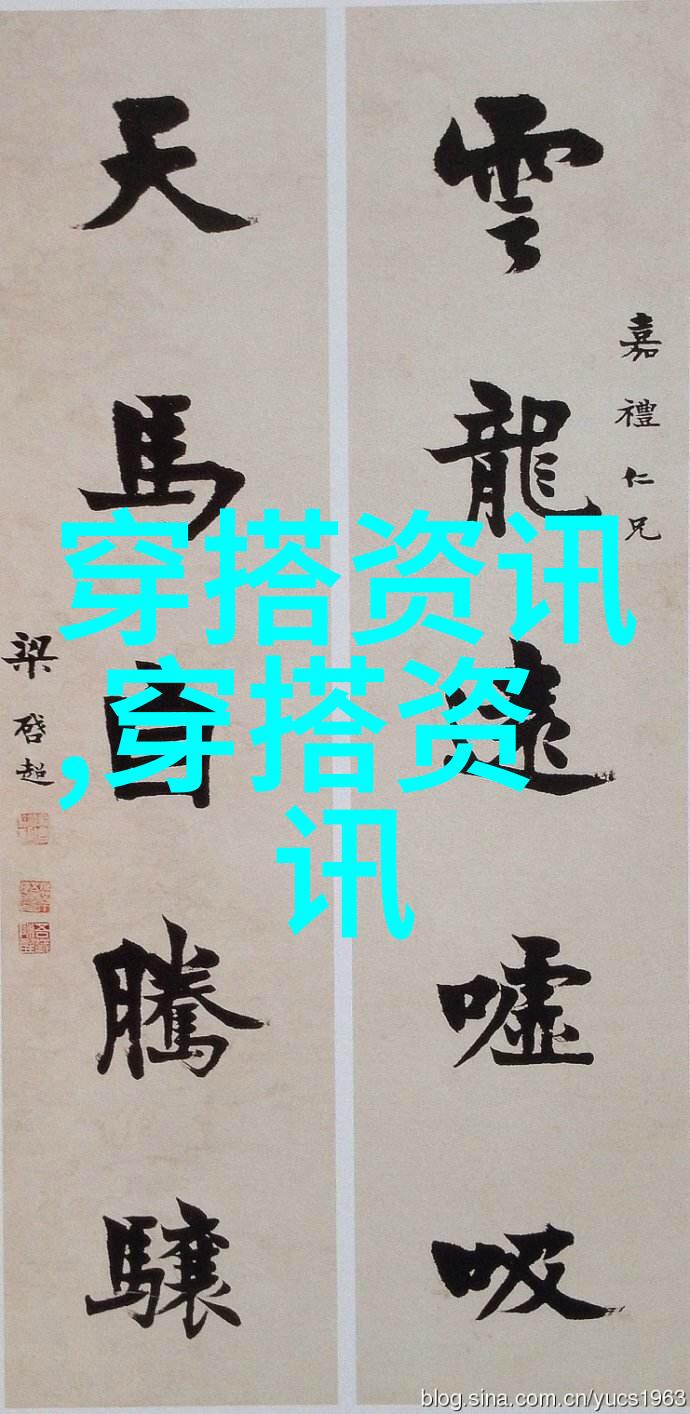 嘉禮仁兄
雲龍遠噓吸
天馬騰驤
梁啓超
穿搭资讯
,穿搭资
讯
blog.sina.com.cn/yucs1963